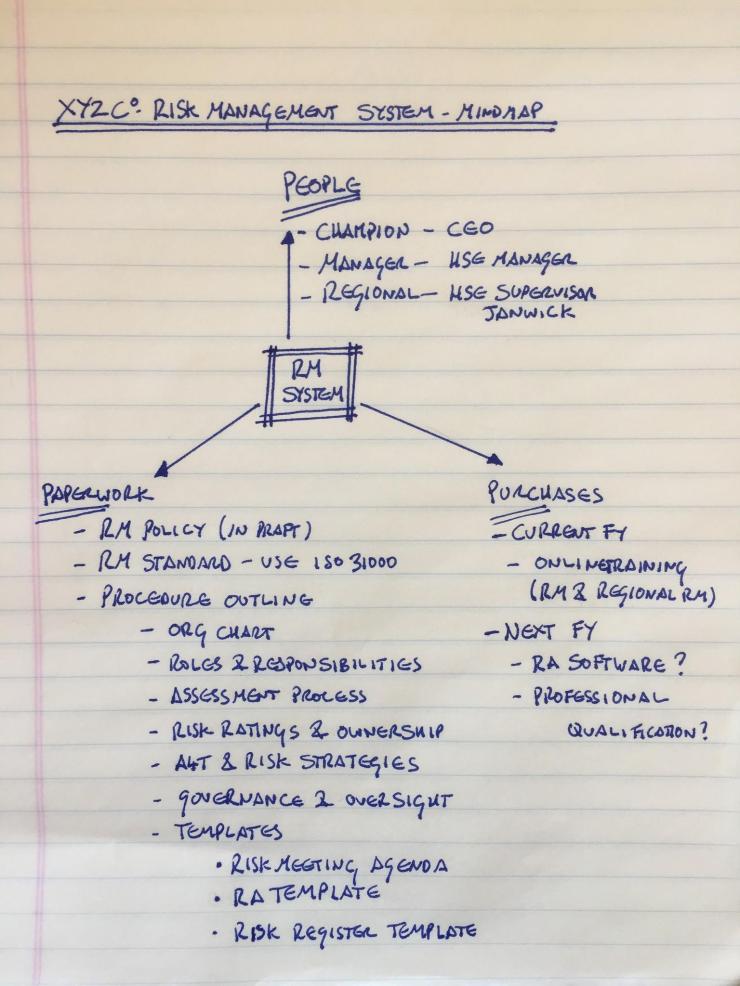 XYZ Cº. RISK MANAGEMENT SYSTEM - MINDMAP
PEOPLE
- CHAMPION - CEO
- MANAGER - HSE MANAGER
- REGIONAL - HSE SUPERVISOR
JANWICK
RM
SYSTEM
PAPERWORK
- RM POLICY (IN DRAFT)
- RM STANDARD - USE ISO 31000
- PROCEDURE OUTLING
- ORG CHART
- ROLES & RESPONSIBILITIES
- ASSESSMENT PROCESS
- RISK RATINGS & OWNERSHIP
- A4T & RISK STRATEGIES
- GOVERNANCE & OVERSIGHT
- TEMPLATES
• RISK MEETING AGENDA
• RA TEMPLATE
• RISK REGISTER TEMPLATE
PURCHASES
- CURRENT FY
- ONLINE TRAINING
(RM & REGIONAL RM)
- NEXT FY
- RA SOFTWARE?
- PROFESSIONAL
QUALIFICATION?